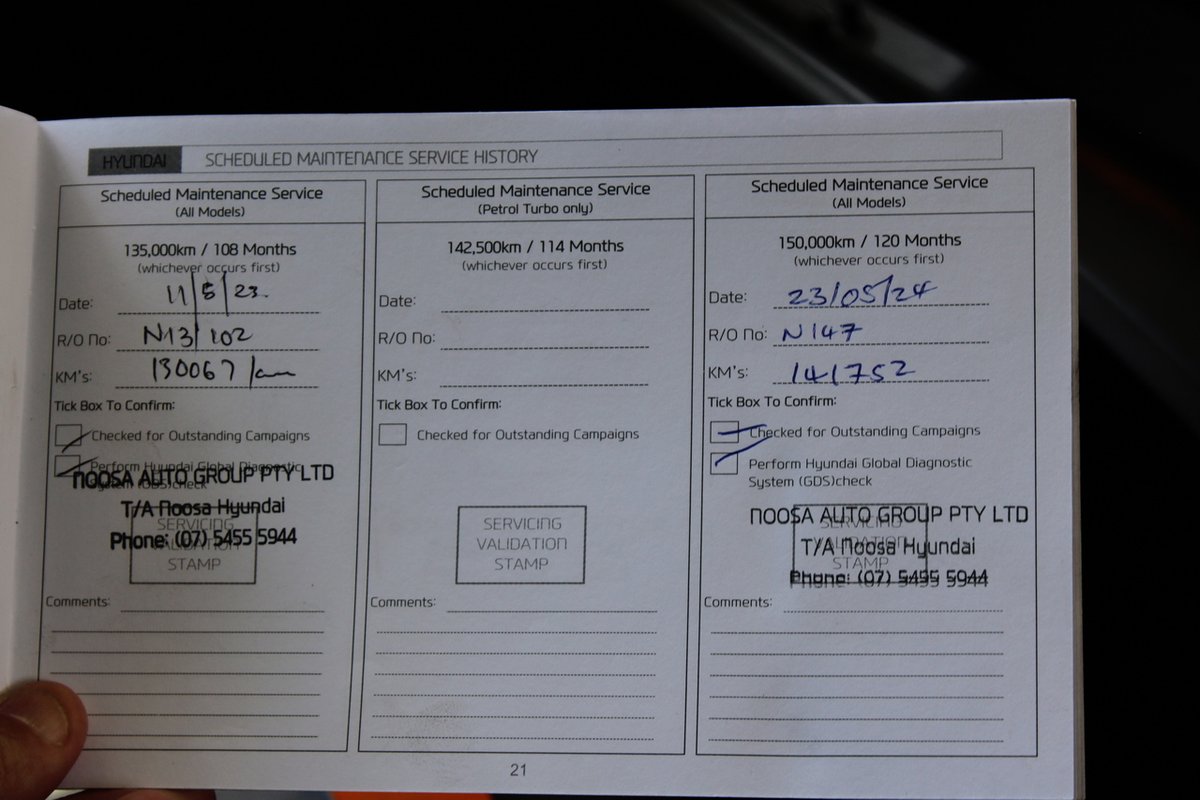 HYUNDAI SCHEDULED MAINTENANCE SERVICE HISTORY
Scheduled Maintenance Service
(All Models)
135,000km / 108 Months
(whichever occurs first)
Date: 11/5/23
R/O No: N13/102
KM's: 130067 km
Tick Box To Confirm:
Checked for Outstanding Campaigns
Perform Hyundai Global Diagnostic
System (GDS)check
NOOSA AUTO GROUP PTY LTD
T/A Noosa Hyundai
Phone: (07) 5455 5944
SERVICING
VALIDATION
STAMP
Comments:
Scheduled Maintenance Service
(Petrol Turbo only)
142,500km / 114 Months
(whichever occurs first)
Date:
R/O No:
KM's:
Tick Box To Confirm:
Checked for Outstanding Campaigns
SERVICING
VALIDATION
STAMP
Comments:
Scheduled Maintenance Service
(All Models)
150,000km / 120 Months
(whichever occurs first)
Date: 23/05/24
R/O No: N147
KM's: 141752
Tick Box To Confirm:
Checked for Outstanding Campaigns
Perform Hyundai Global Diagnostic
System (GDS)check
NOOSA AUTO GROUP PTY LTD
T/A Noosa Hyundai
Phone: (07) 5455 5944
SERVICING
VALIDATION
STAMP
Comments:
21